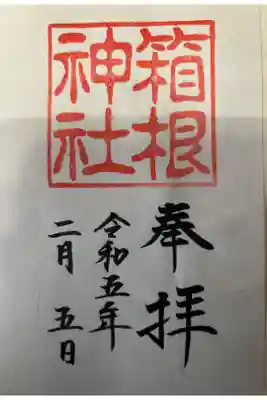 箱根
神社
奉拝
令和五年
二月五日